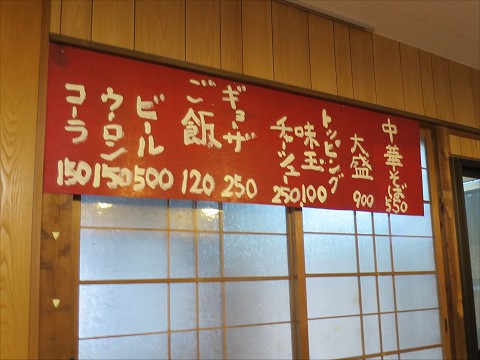 中華そば
550
大盛
900
トッピング
味玉
100
チャーシュー
250
ギョーザ
250
ご飯
120
ビール
500
ウーロン
150
コーラ
150